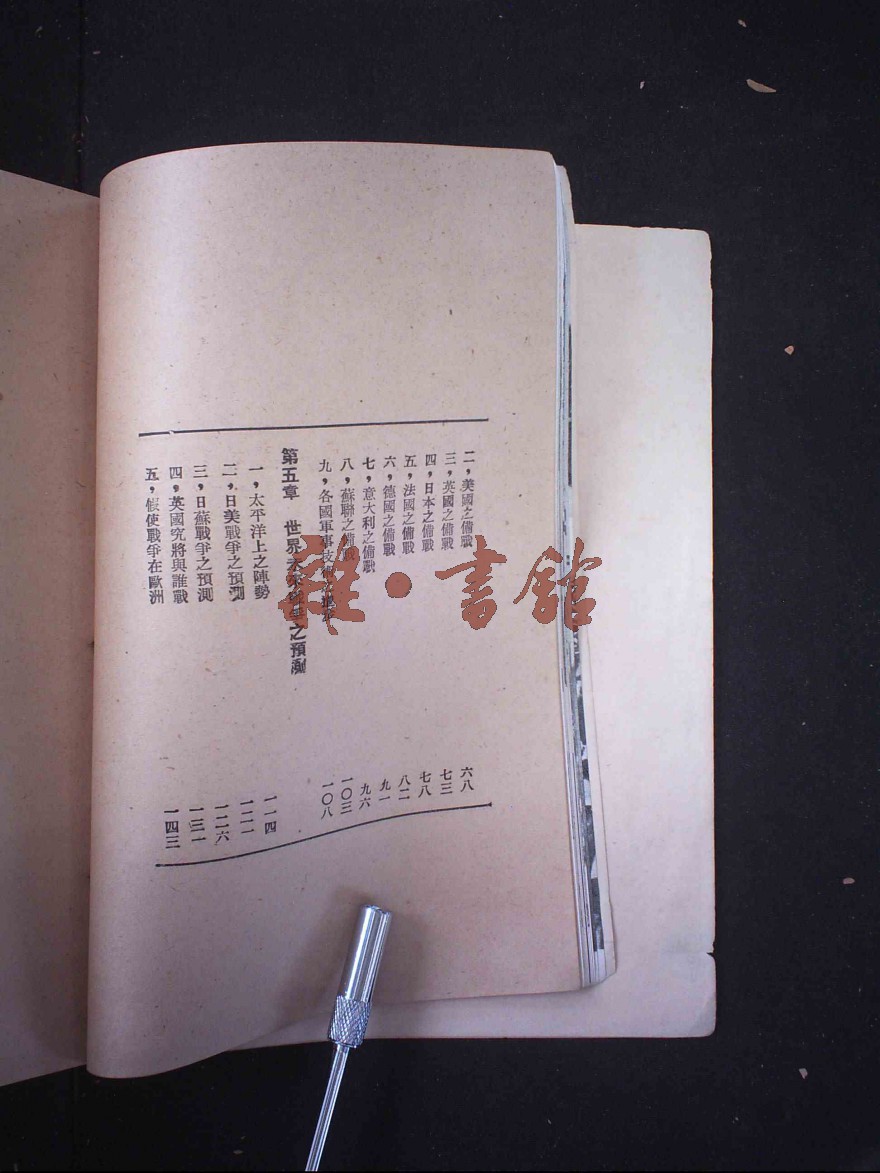 二，美國之備戰 六八
三，英國之備戰 七三
四，日本之備戰 七八
五，法國之備戰 八二
六，德國之備戰 九一
七，意大利之備戰 九六
八，蘇聯之備戰 一〇三
九，各國軍事技術 一〇八
第五章 世界未來戰爭之預測
一，太平洋上之陣勢 一一四
二，日美戰爭之預測 一二一
三，日蘇戰爭之預測 一二六
四，英國究將與誰戰 一三一
五，假使戰爭在歐洲 一四三
雜·書館